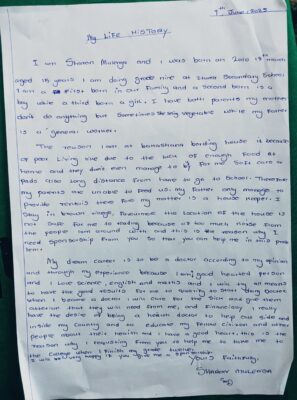 7th, June, 2025
My LIFE HISTORY.
I am Sharon Mulenga and I was born on 2010 15th march
aged 15 years I am doing grade nine at Secondary School
I am a first born in our family and a second born is a
boy while a third born a girl. I have both parents my mother
don't do anything but Sometimes vegetable while my father
is a general worker.
The reason I am at boarding house it because
of poor living due to the lack of enough food at
home and they don't even manage to for me soft care to
Pads also long distance from home to go to School. Therefore
my parents the unable to feed us. my father only manage to
provide rentals then for my matter is a house keeper. I
Stay in village, Furthermore the location of the house is
not safe for me to reading because of too much noise from
the people around with and this is the reason why I
need Sponsorship from you so that you can help me in
My dream career is to be a doctor according to my opinion
and through my experience because I am good hearted person
and I love Science, english and maths and I will try all means
to have the good results for me to qualify to Start Doing Course
when I become a doctor I will care for the Sick and give them
attention that they will need from me, and Financially I really
have the desire of being a health doctor to help out side and
inside my country and to educate my fellow citizen and other
people about their health and I have a good heart. this is the
reason why I requesting from you to help me to take me to
the College when I finish my grade twelve.
I will be very happy if you give me a sponsorship
Yours Faithfully.
SHARON MULENGA